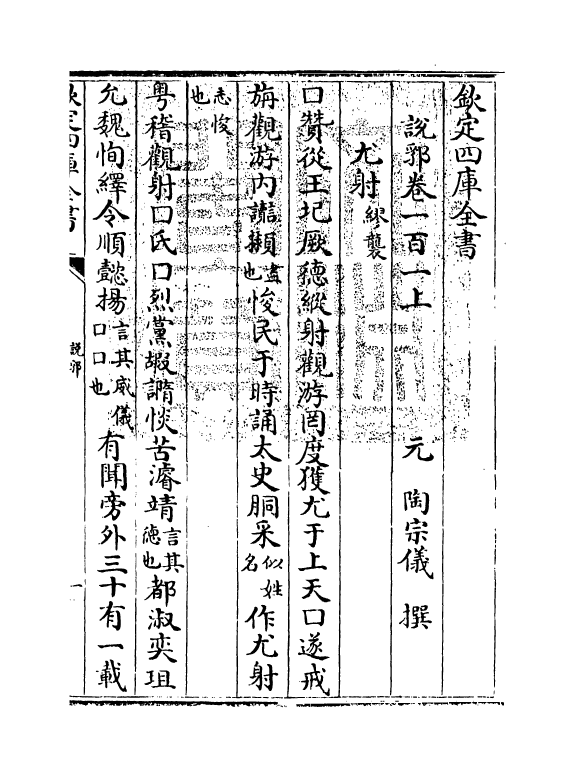 欽定四庫全書
說郛卷一百一上 元 陶宗儀 撰
尤射 繆襲
口贊從王圮厥德縱射觀游罔度獲尤于上天口遂戒
旃觀游内盡也悛民于時誦太史胴采似姓名作尤射
志悛也
粤稽觀射口氏口烈黨嘏惔苦濬靖言其德也都淑奕珇
允魏恂繹令順懿揚言其威儀口口也有聞旁外三十有一載
欽定四庫全書
說郛
一